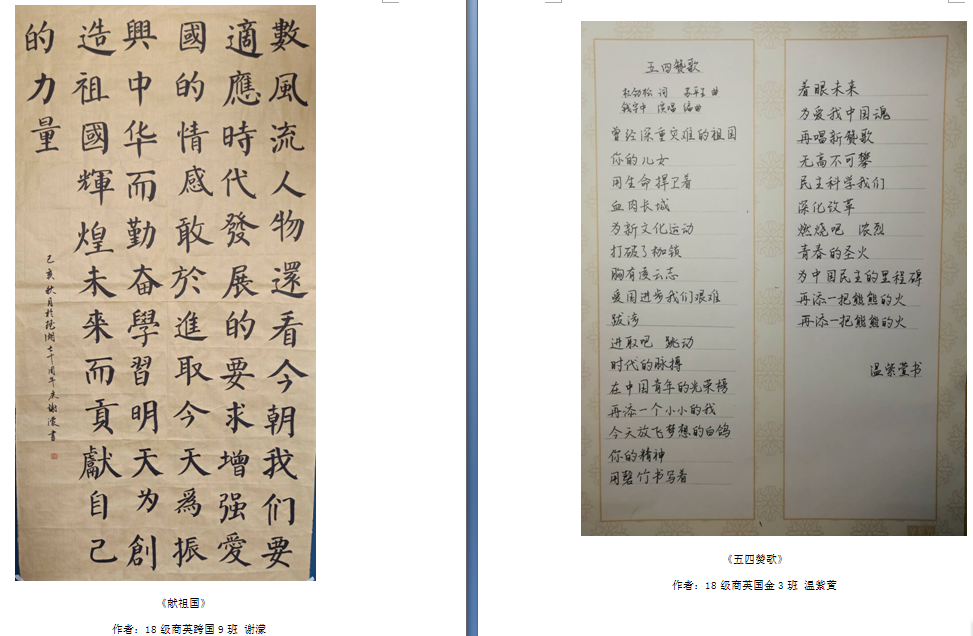 數風流人物還看今朝我们要
適應時代發展的要求增强愛
國的情感敢於進取今天爲振
興中华而勤奋學習明天为創
造祖國輝煌未來而貢獻自己
的力量
己亥秋月於湖七十周年庆谢濛書
《献祖国》
作者：18级商英跨国9班 谢濛
五四赞歌
词 曲
演唱 编曲
曾经深重灾难的祖国
你的儿女
用生命捍卫着
血肉长城
为新文化运动
打破了枷锁
胸有凌云志
爱国进步我们艰难
跋涉
进取吧 跳动
时代的脉搏
在中国青年的光荣榜
再添一个小小的我
今天放飞梦想的白鸽
你的精神
用罄竹书写着
着眼未来
为爱我中国魂
再唱新赞歌
无高不可攀
民主科学我们
深化改革
燃烧吧 浓烈
青春的圣火
为中国民主的里程碑
再添一把熊熊的火
再添一把熊熊的火
温紫萱书
《五四赞歌》
作者：18级商英国金3班 温紫萱